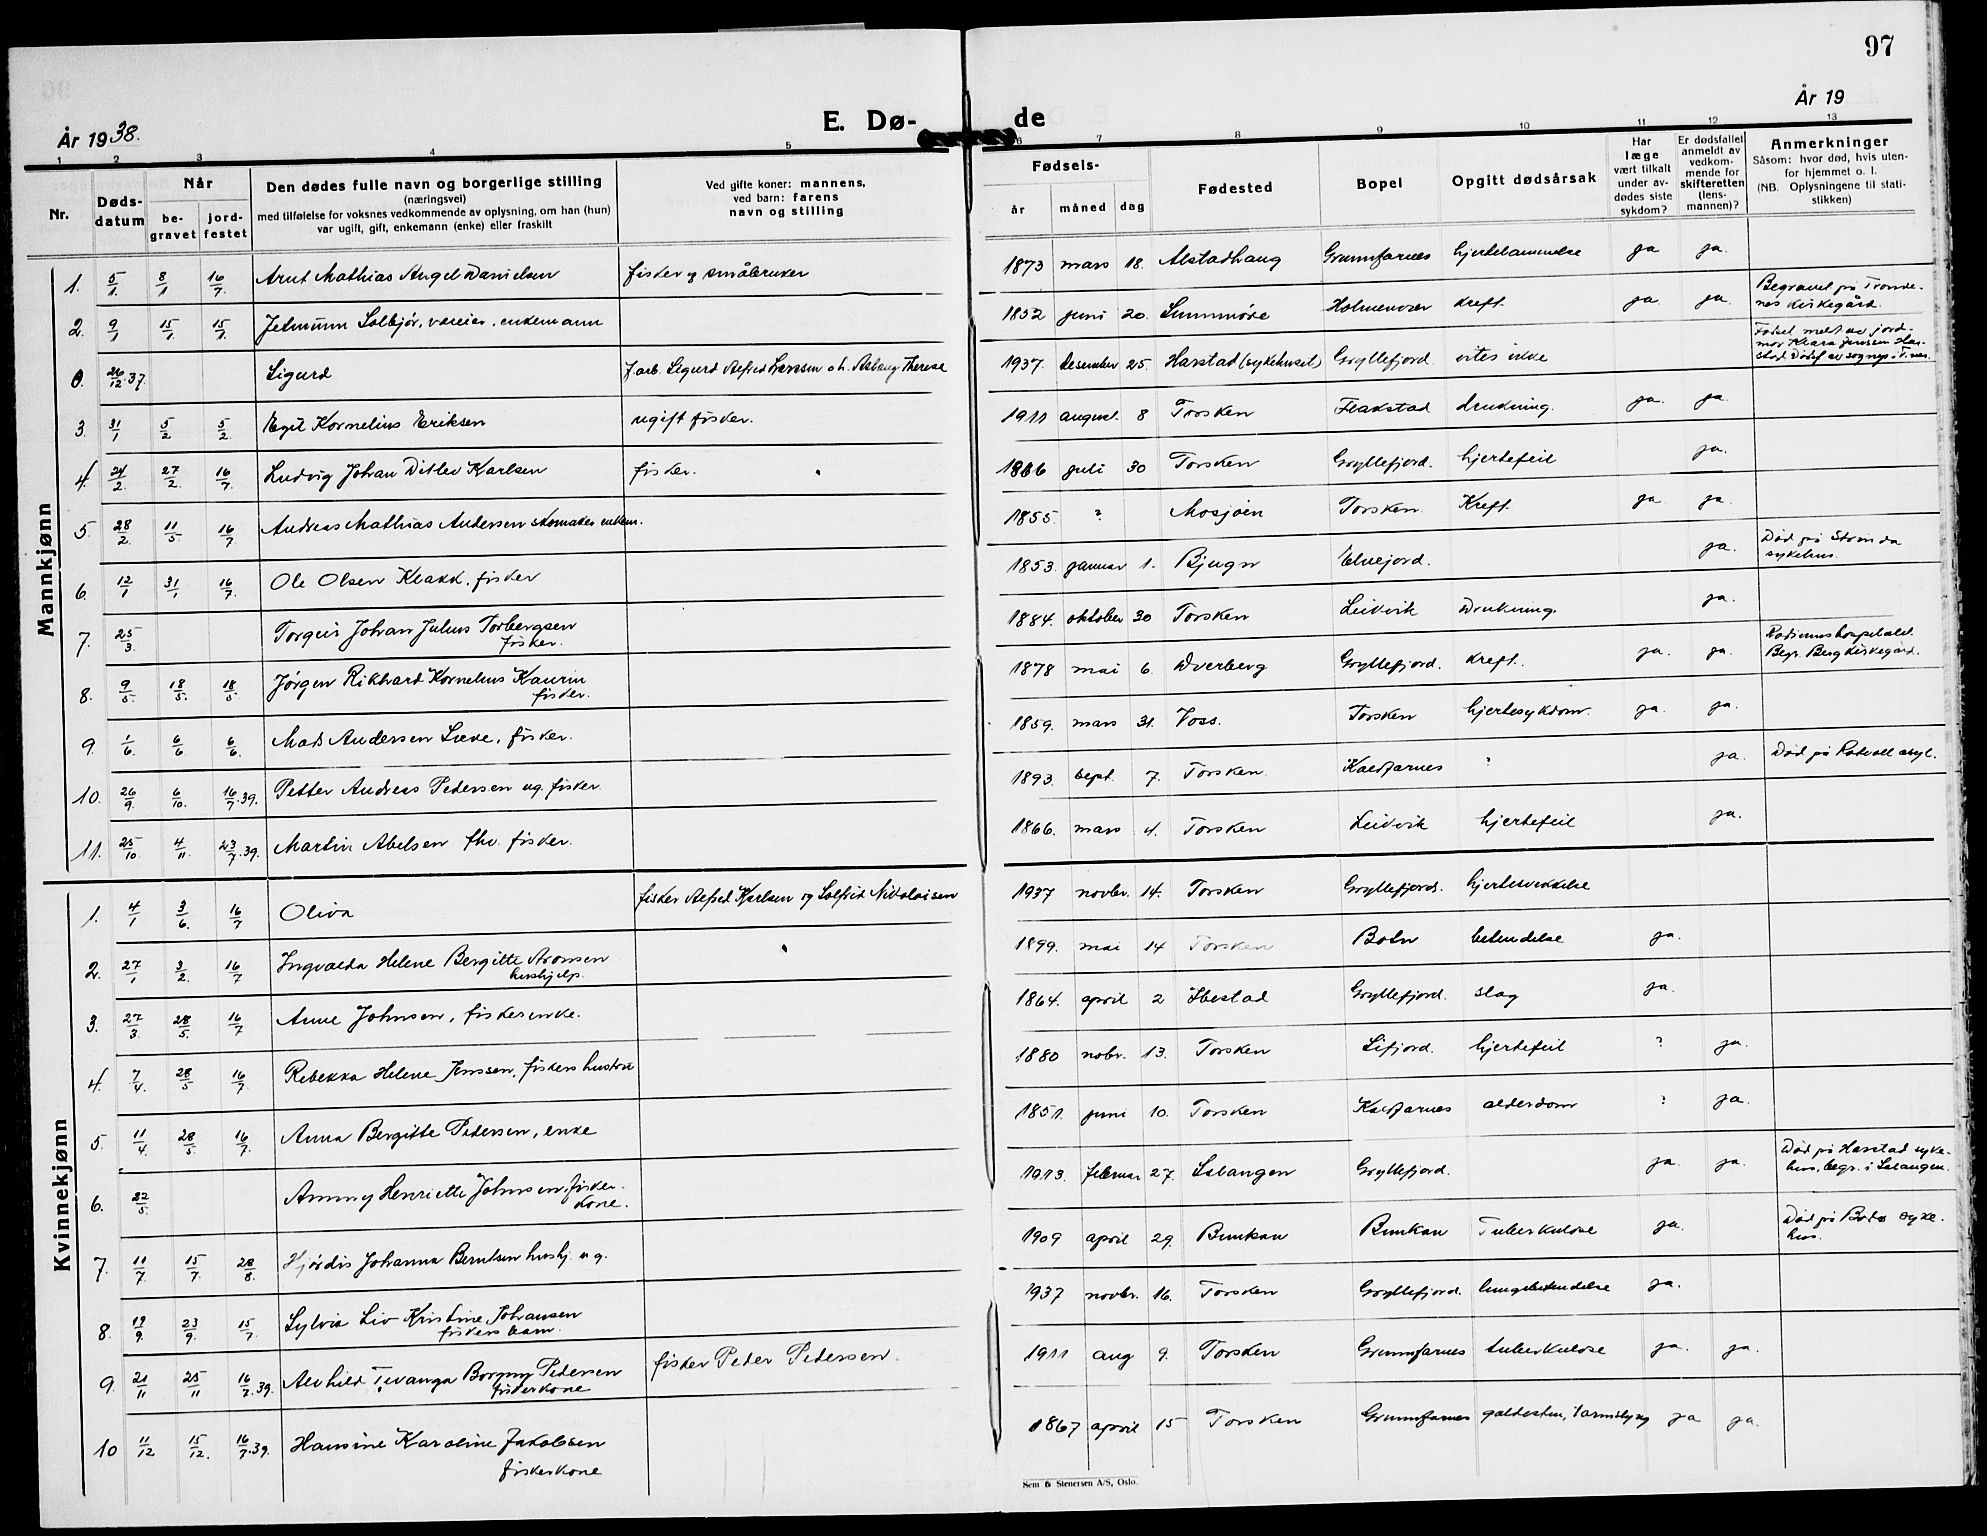 97
År 1938.
E. Dø-
de
År 19
1 2 3 4 5 6 7 8 9 10 11 12 13
Nr.
Døds-
datum
Når
be-
gravet
jord-
festet
Den dødes fulle navn og borgerlige stilling
(næringsvei)
med tilføielse for voksnes vedkommende av oplysning, om han (hun)
var ugift, gift, enkemann (enke) eller fraskilt
Ved gifte koner: mannens,
ved barn: farens
navn og stilling
Fødsels-
år måned dag
Fødested
Bopel
Opgitt dødsårsak
Har
læge
vært tilkalt
under av-
dødes siste
sykdom?
Er dødsfallet
anmeldt av
vedkom-
mende for
skifteretten
(lens-
mannen)?
Anmerkninger
Såsom: hvor død, hvis uten-
for hjemmet o. l.
(NB. Oplysningene til stati-
stikken)
Mannkjønn
1. 5/1 8/1 16/7 Arnt Mathias Angel Danielsen fisker og småbruker 1873 mars 18. Alstadhaug Grunnfarnes hjertelammelse ja ja.
2. 9/1 15/1 15/1 Jetmunn Solbjør, væreier, enkemann 1852 juni 20. Sunnmøre Holmenvær kreft. ja ja. Begravet på Tronde-
nes kirkegård.
0. 26/12.37 Sigurd f.arb. Sigurd Alfred Larssen o.h. Aslaug Therese 1937. desember 25. Harstad (sykehuset) Gryllefjord. vites ikke Fødsel meldt av jord-
mor Klara Jensen Har-
stad
3. 31/1 5/2 5/2 Egil Kornelius Eriksen ugift fisker. 1911 august. 8 Torsken Flakstad drukning. ja. ja.
4. 24/2. 27/2. 16/7 Ludvig Johan Ditlev Karlsen fisker. 1866 juli 30 Torsken Gryllefjord. hjertefeil ja.
5. 28/2. 11/5. 16/7 Andreas Mathias Andersen skomaker enkem. 1855. ? Mosjøen Torsken. Kreft. ja ja.
6. 12/1 31/1 16/7. Ole Olsen Klakk, fisker 1853. januar 1. Bjugn Elvejord. ja. Død på Stranda
sykehus.
7. 25/3 Torgeir Johan Julius Torbergsen
fisker. 1884. oktober 30 Torsken Leikvik Drukning. ja.
8. 9/5. 18/5. 18/5. Jørgen Rikhard Kornelius Kaurin
fisker. 1878 mai 6. Dverberg Gryllefjord. kreft. ja. ja. Radiumshospitalet.
Begr. Berg kirkegård.
9. 1/6. 6/6 6/6. Mads Andersen Liene, fisker. 1859. mars 31. Voss. Torsken hjertesykdom. ja. ja.
10. 26/9. 6/10. 16/7.39. Petter Andreas Pedersen ug. fisker. 1893. sept. 7. Torsken. Kaldfarnes ? ja. Død på Rotvoll asyl.
11. 25/10. 4/11. 23/7.39. Martin Abelsen fhv. fisker. 1866. mars 4. Torsken Leikvik hjertefeil ja.
Kvinnekjønn
1. 4/1 3/6. 16/7 Oliva fisker Alfred Karlsen og Solfrid Nikolaisen 1937 novbr. 14. Torsken Gryllefjord. hjertesvekkelse
2. 27/1 3/2. 16/7 Ingvalda Helene Bergitte Aronsen
hushjelp. 1899. mai 14 Torsken Botn betendelse ja.
3. 27/3. 28/5. 16/7 Anne Johnsen, fiskerenke. 1864. april 2 Ibestad Gryllefjord. slag ja.
4. 7/4. 28/5 16/7. Rebekka Helene Jenssen, fiskers hustru 1880 nobr. 13. Torsken Lifjord. hjertefeil ? ja.
5 11/4. 28/5. 16/7. Anna Bergitte Pedersen, enke 1851. juni 10. Torsken Kaldfarnes alderdom ? ja.
6. 22/5. Ammy Henriette Johnsen, fisker-
kone. 1913. februar 27. Salangen Gryllefjord. ja. ja. Død på Harstad syke-
hus, begr. i Salangen.
7. 11/7 15/7. 28/8. Hjørdis Johanna Berntsen hushj. ug. 1909 april 29. Bunkan Bunkan Tuberkulose ja. Død på Bodø syke-
hus.
8. 19/9. 23/9. 15/7. Sylvia Liv Kristine Johansen
fiskers barn. 1937 novbr. 16. Torsken Gryllefjord. lungebetendelse ja.
9. 21/11 25/11 16/7.39. Alvhild Borgny Pedersen
fiskerkone fisker Peder Pedersen. 1911 aug 9. Torsken Grunnfarnes tuberkulose ja. ja.
10 11/12 15/12. 16/7.39. Hansine Karoline Jakobsen
fiskerkone 1867 april 15 Torsken Grunnfarnes galdesten, tarmslyng ja ja.
Sem & Stenersen A/S, Oslo.